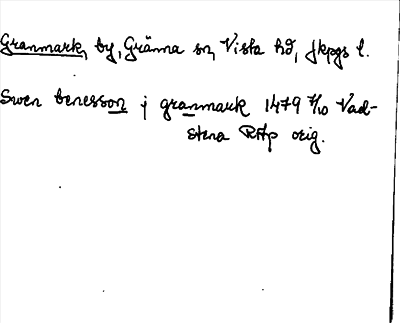 Granmark, by, Gränna sn, Vista hd, Jkpgs l.
Swen benesson j granmark 1479 7/10 Vad-
stena RAp orig.